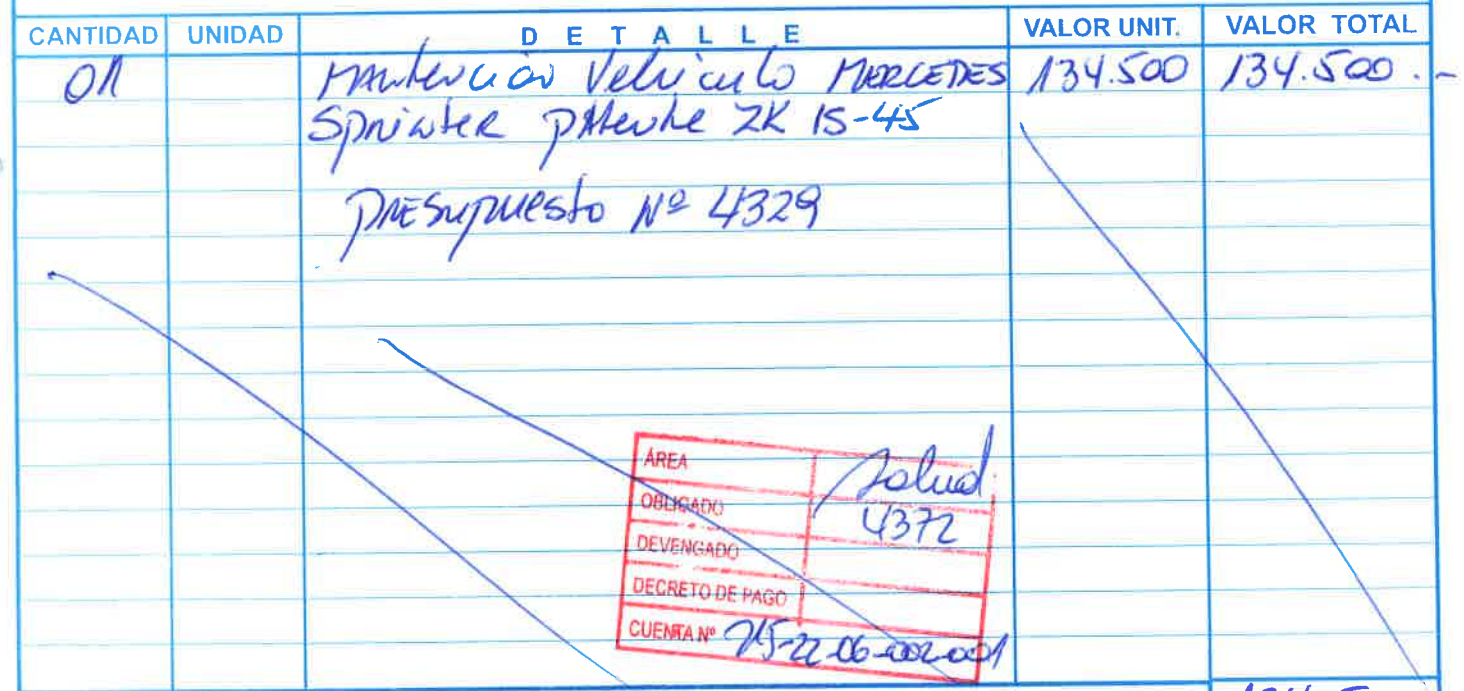 CANTIDAD UNIDAD DETALLE VALOR UNIT. VALOR TOTAL
01 Mantención Vehículo MERCEDES 134.500 134.500.-
Sprinter patente ZK IS-45
Presupuesto Nº 4329
ÁREA Salud
OBLIGADO 4372
DEVENGADO
DECRETO DE PAGO
CUENTA Nº 215-22-06-002-001